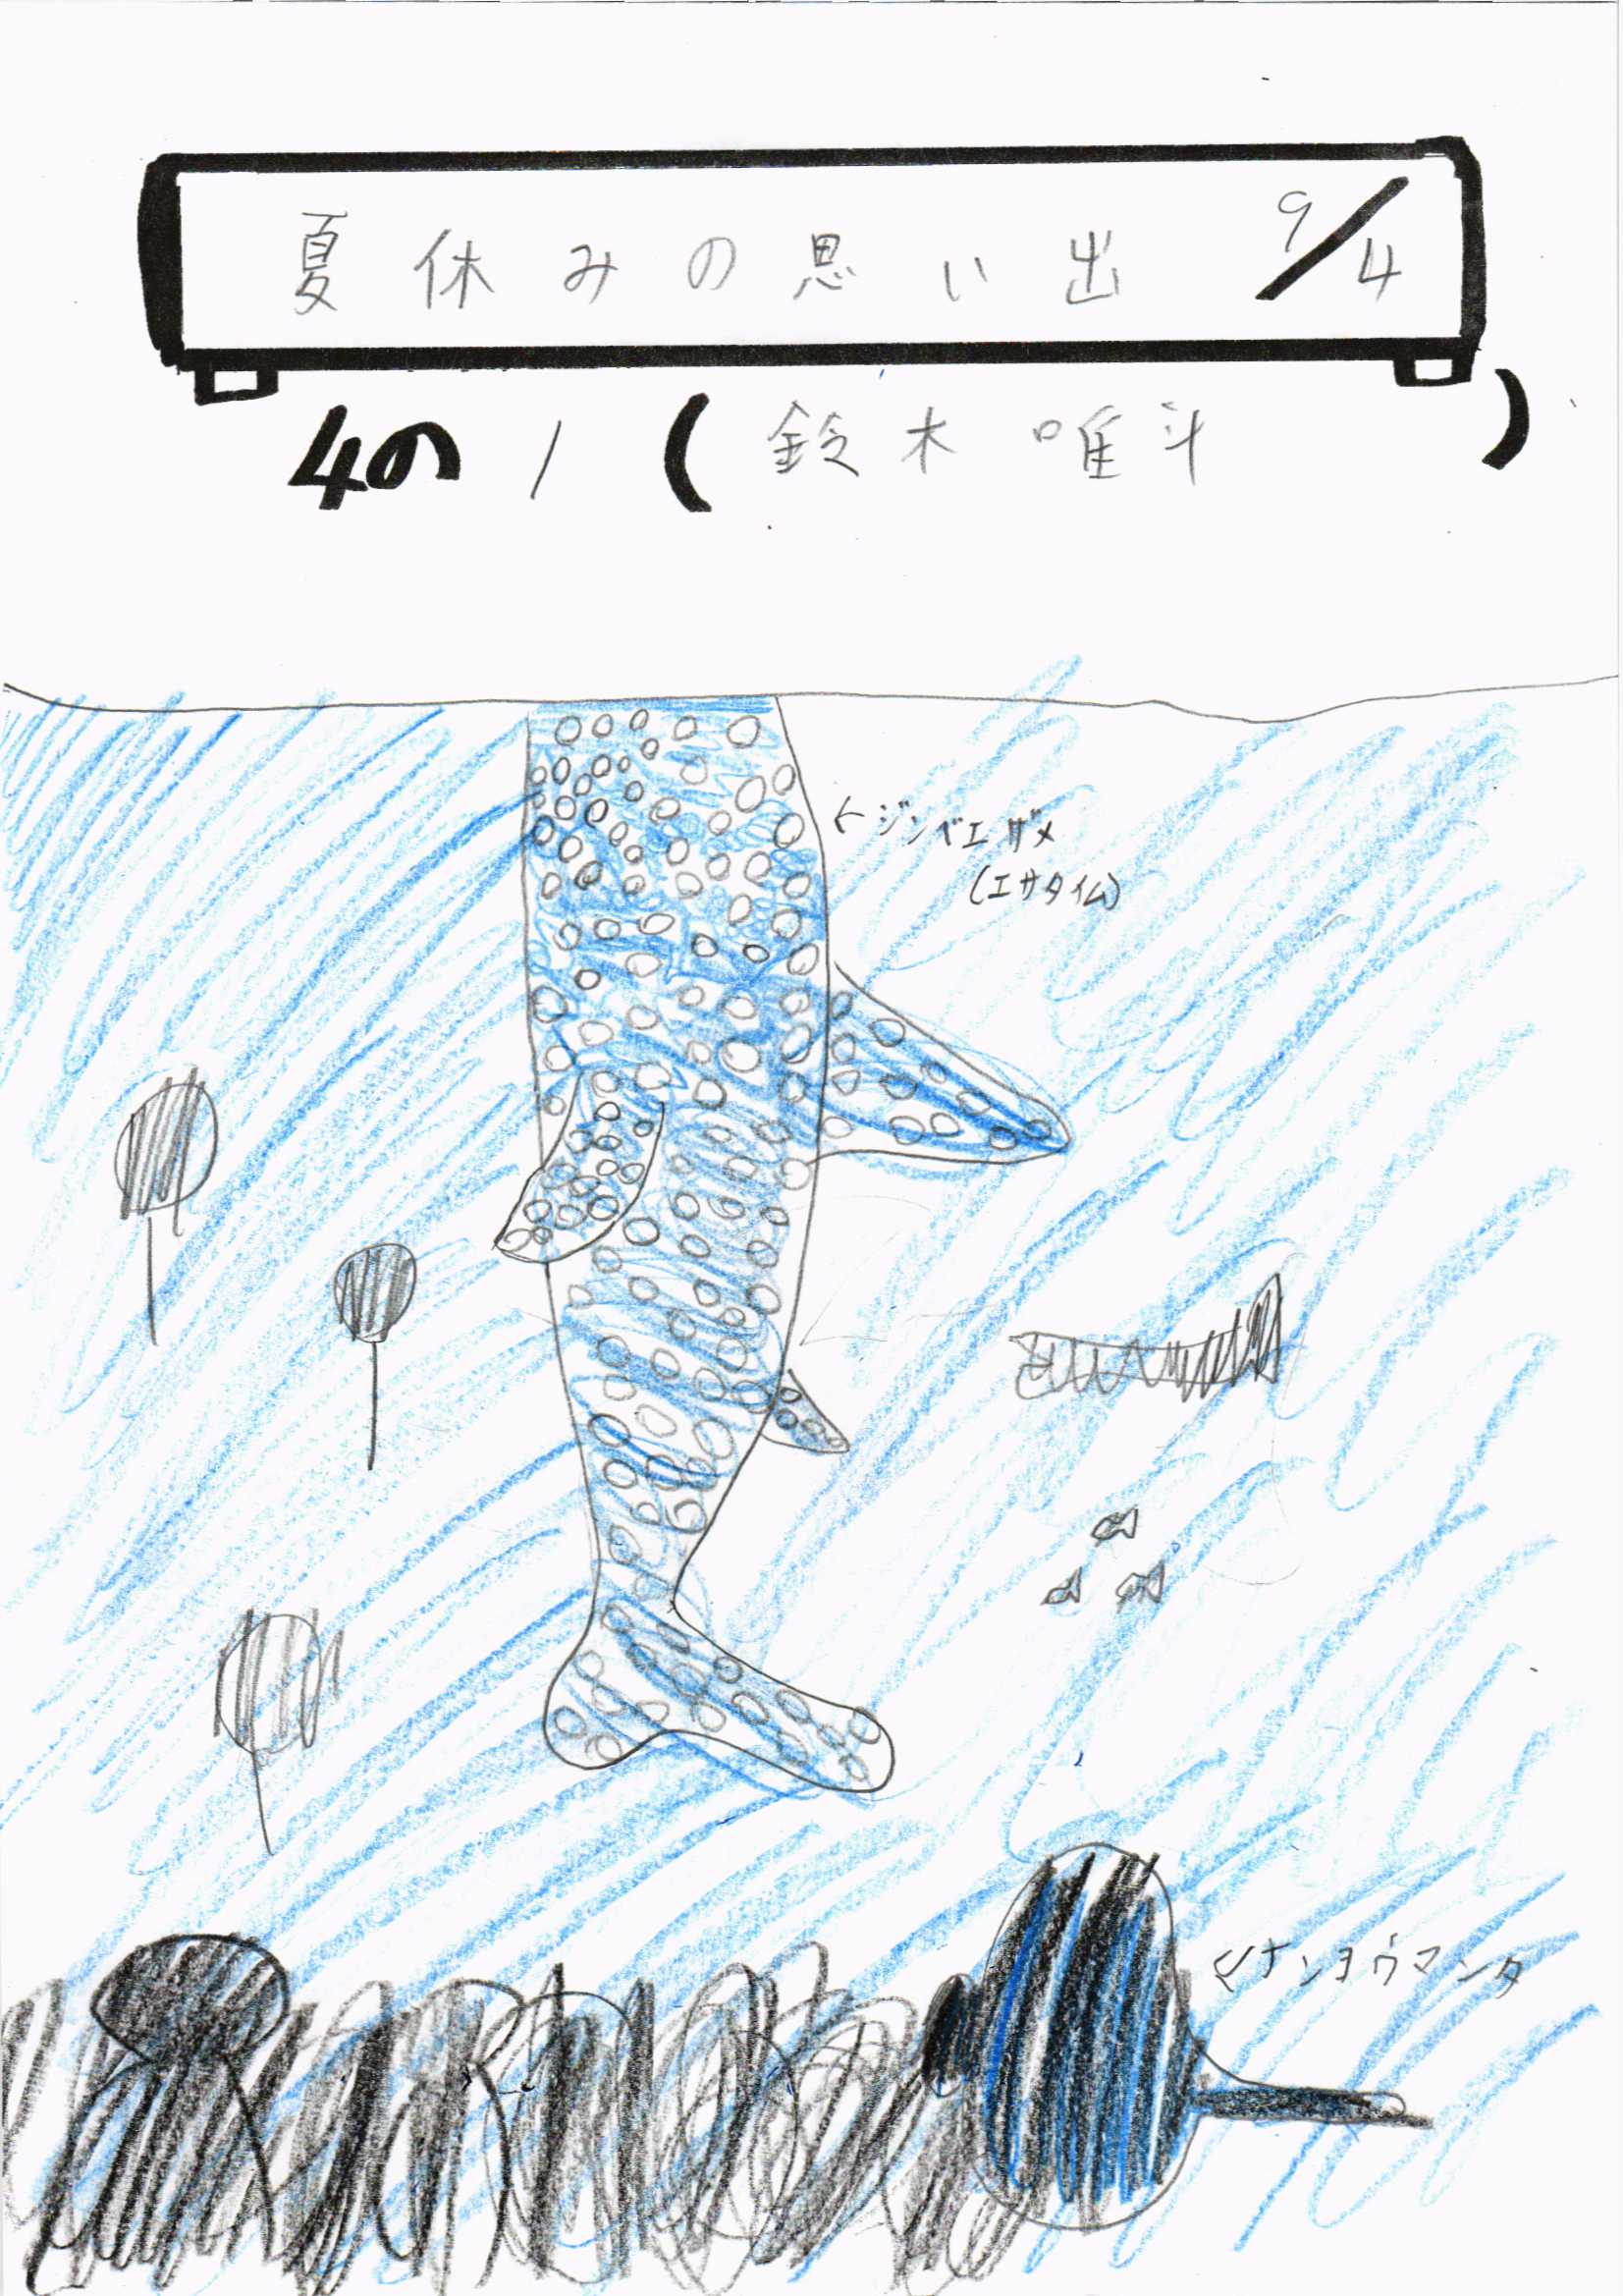 夏休みの思い出 9/4
4の1(鈴木唯斗)
←ジンベエザメ
(エサタイム)
←ナンヨウマンタ